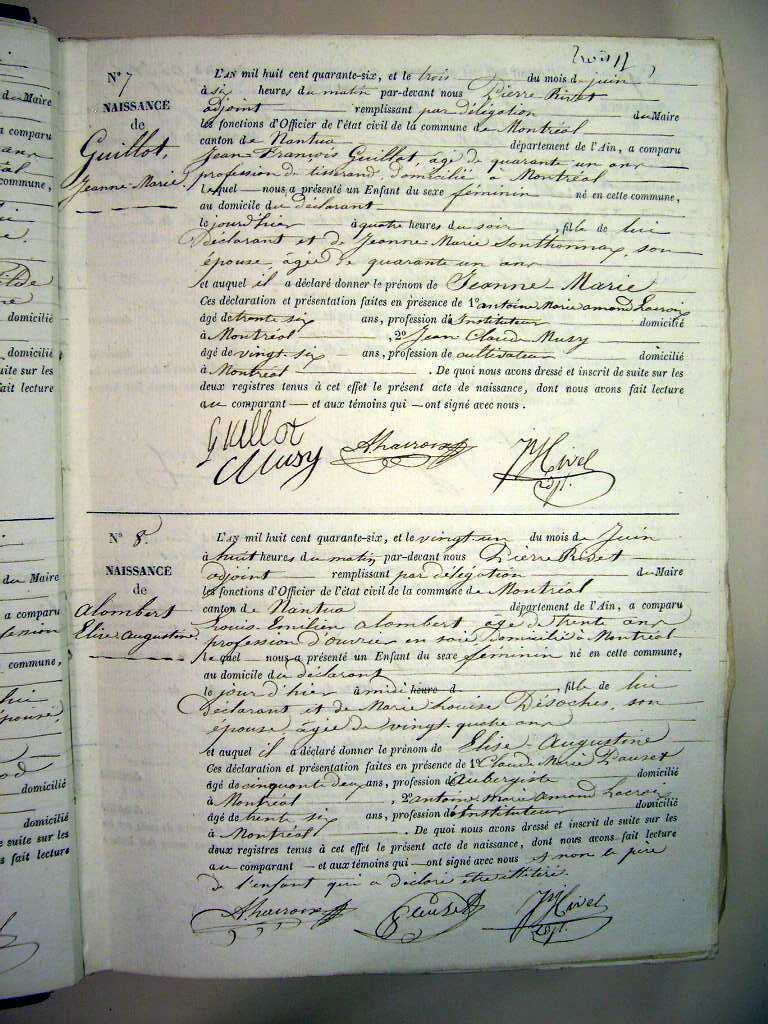 N° 7
NAISSANCE
de
Guillot,
Jeanne Marie.
L'AN mil huit cent quarante-six, et le trois du mois de juin
à six heures du matin par-devant nous Pierre Rivet
adjoint remplissant par délégation du Maire
les fonctions d'Officier de l'état civil de la commune de Montréal
canton de Nantua département de l'Ain, a comparu
Jean François Guillot, âgé de quarante un ans
profession de tisserand, domicilié à Montréal
Lequel nous a présenté un Enfant du sexe féminin né en cette commune,
au domicile du déclarant
le jourd'hier à quatre heures du soir, fille de lui
Déclarant et de Jeanne Marie Sonthonnax, son
épouse âgée de quarante un ans
et auquel il a déclaré donner le prénom de Jeanne Marie
Ces déclaration et présentation faites en présence de 1° antoine Marie amond Lacroix
âgé de trente six ans, profession d'Instituteur domicilié
à Montréal, 2° Jean Claude Musy
âgé de vingt six ans, profession de cultivateur domicilié
à Montréal. De quoi nous avons dressé et inscrit de suite sur les
deux registres tenus à cet effet le présent acte de naissance, dont nous avons fait lecture
au comparant et aux témoins qui ont signé avec nous.
Guillot
Musy
N° 8.
NAISSANCE
de
alombert
Elise Augustine
L'AN mil huit cent quarante-six, et le vingt un du mois de Juin
à huit heures du matin par-devant nous Pierre Rivet
adjoint remplissant par délégation du Maire
les fonctions d'Officier de l'état civil de la commune de Montréal
canton de Nantua département de l'Ain, a comparu
Louis Emilien alombert âgé de trente ans
profession d'ouvrier en soie domicilié à Montréal
Lequel nous a présenté un Enfant du sexe féminin né en cette commune,
au domicile du déclarant
le jour d'hier à midi heure d, fille de lui
Déclarant et de Marie Louise Désoches, son
épouse âgée de vingt-quatre ans
et auquel il a déclaré donner le prénom de Elise-Augustine
Ces déclaration et présentation faites en présence de 1° Claude Marie
âgé de cinquante deux ans, profession d'Aubergiste domicilié
à Montréal, 2° antoine marie amond Lacroix
âgé de trente six ans, profession d'Instituteur domicilié
à Montréal. De quoi nous avons dressé et inscrit de suite sur les
deux registres tenus à cet effet le présent acte de naissance, dont nous avons fait lecture
au comparant et aux témoins qui ont signé avec nous et non le père
de l'enfant qui a déclaré être illitéré.